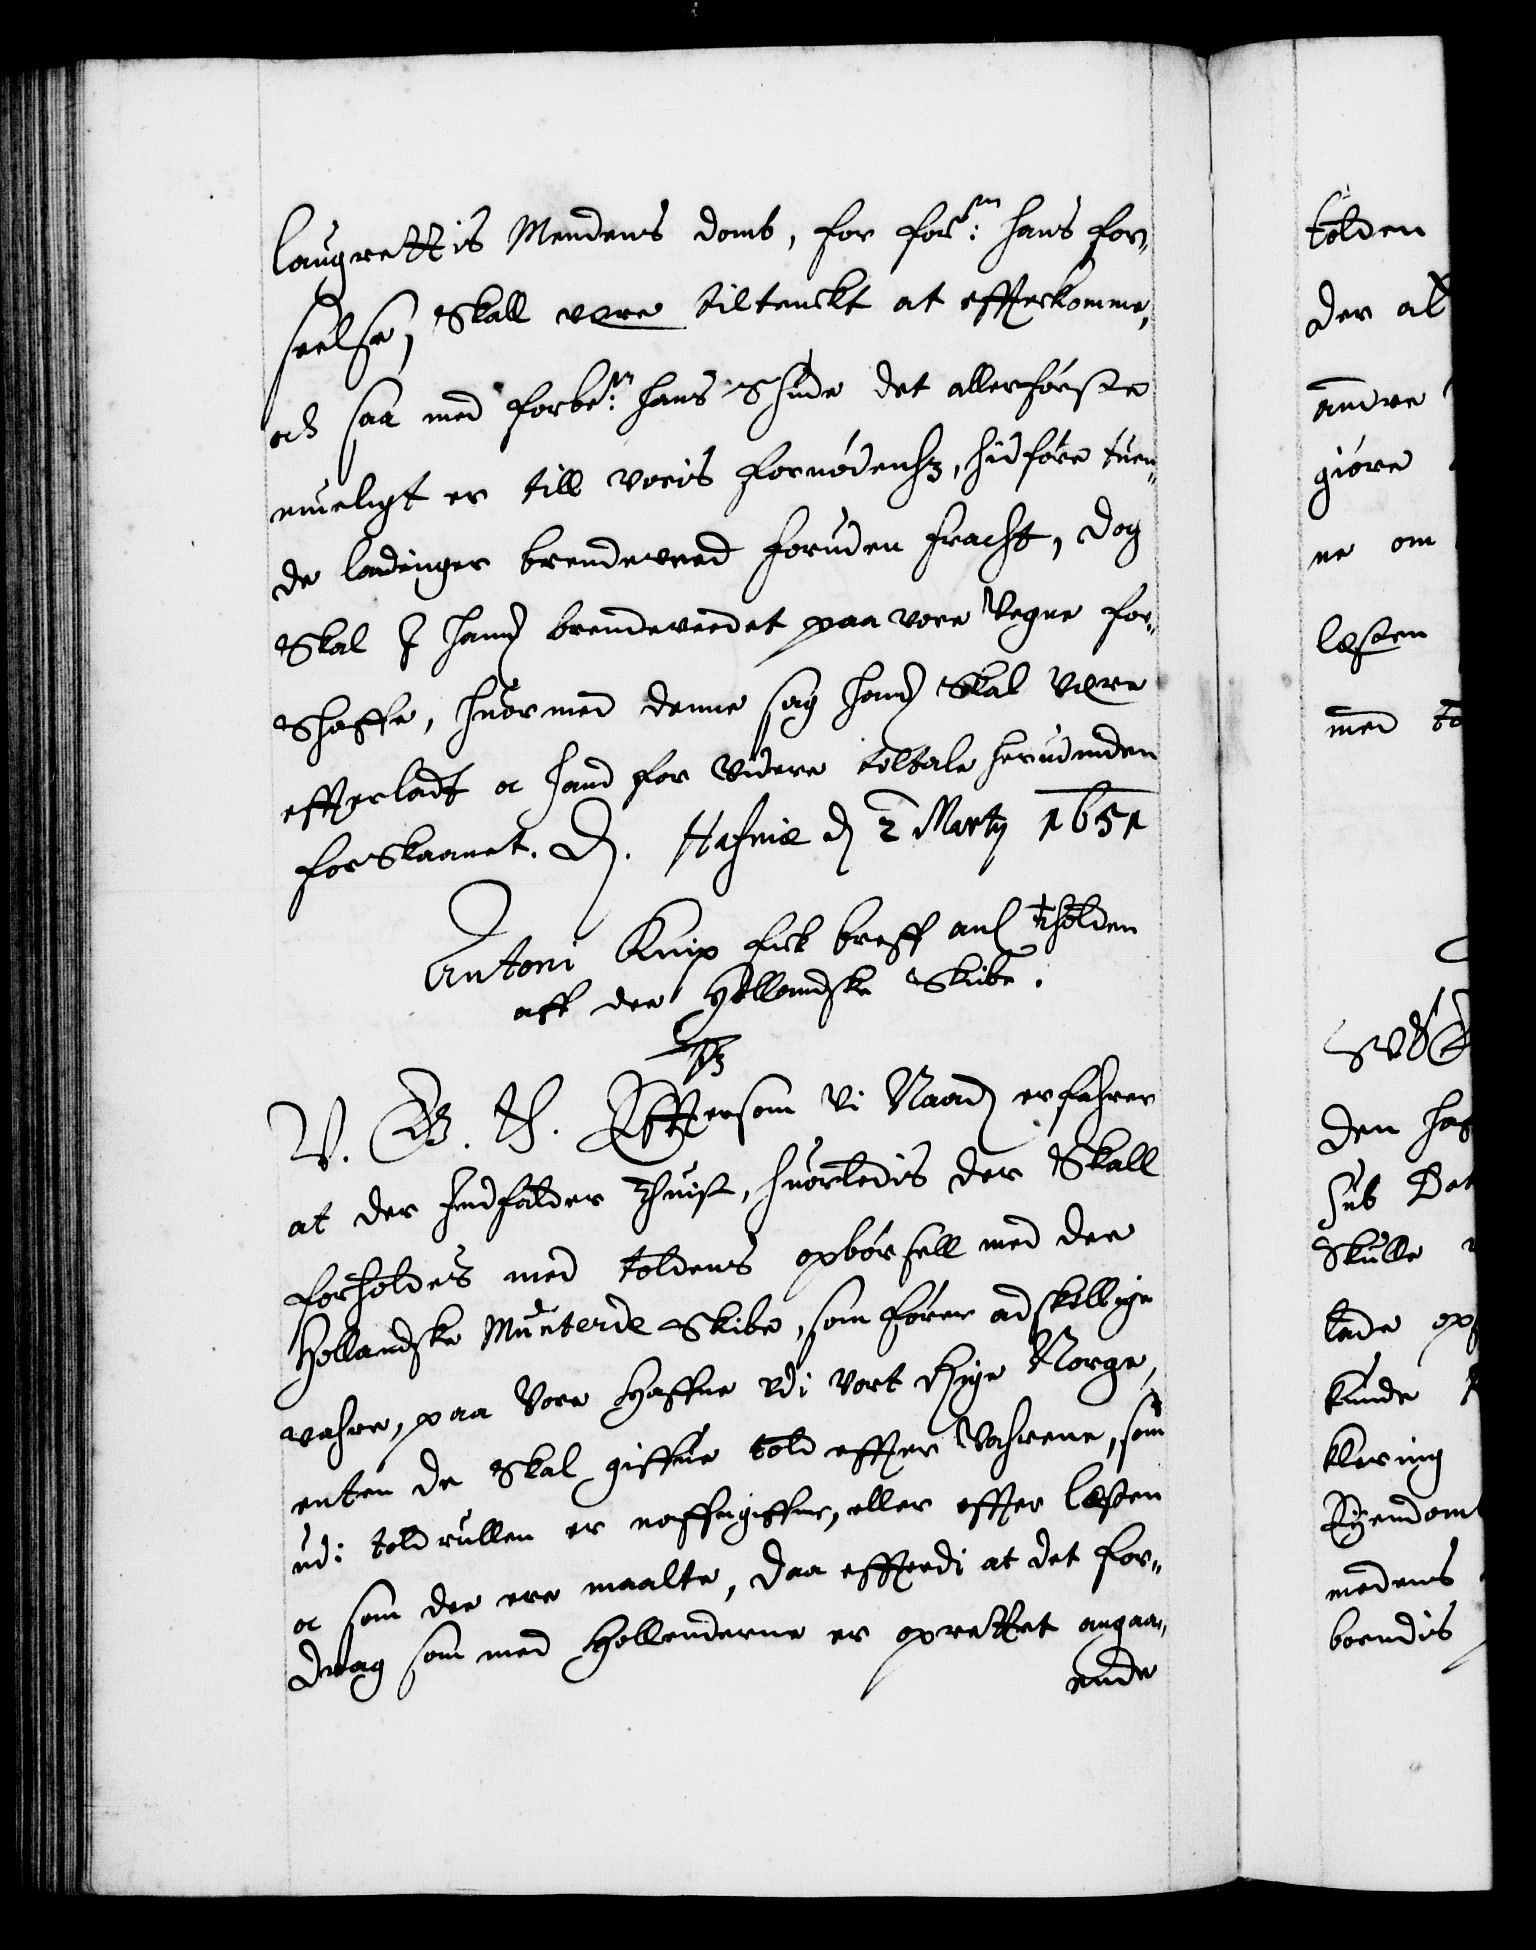 laugrettis Mendens domb, for forne: hans for,,
seelse, skall være tiltenckt at effterkomme,
och saa med forbete: hans Skude det allerførste
mueligt er till voris fornødenhz, hidføre tuen,,
de ladinger brendeveed foruden fracht, dog
Skal I hannd brendeveedet paa vore Vegne for,,
skaffe, huormed denne sag hannd skal være
effterladt oc hand for videre tiltale herudinden
forskaanet. D. Hafniæ d 2 Marty 1651
Antoni Knip fick breff anl tholden
aff dee Hollandske Skibe.
V. G. T. Effttersom vi Naadt erfahrer
at der Indfalder Thuist, huorledis der Skall
forholdes med toldens opbørsell med dee
Hollandske Munterede Skibe, som fører adskillige
vahre, paa Vore Haffne udi vort Rige Norge,
enten de skal giffue told effter Vahrene, som
udi toldrullen er Lasten
oc som dee ere maalte, daa effterdi at det for,,
drag som med Hollenderne er oprettet angaa,,
ende
tolden
der al
andre
giøre
ne om
læsten
med to
den
Sub Dat
Skulle
lade op
kunde
klering
Eyendomb
medens
boendis